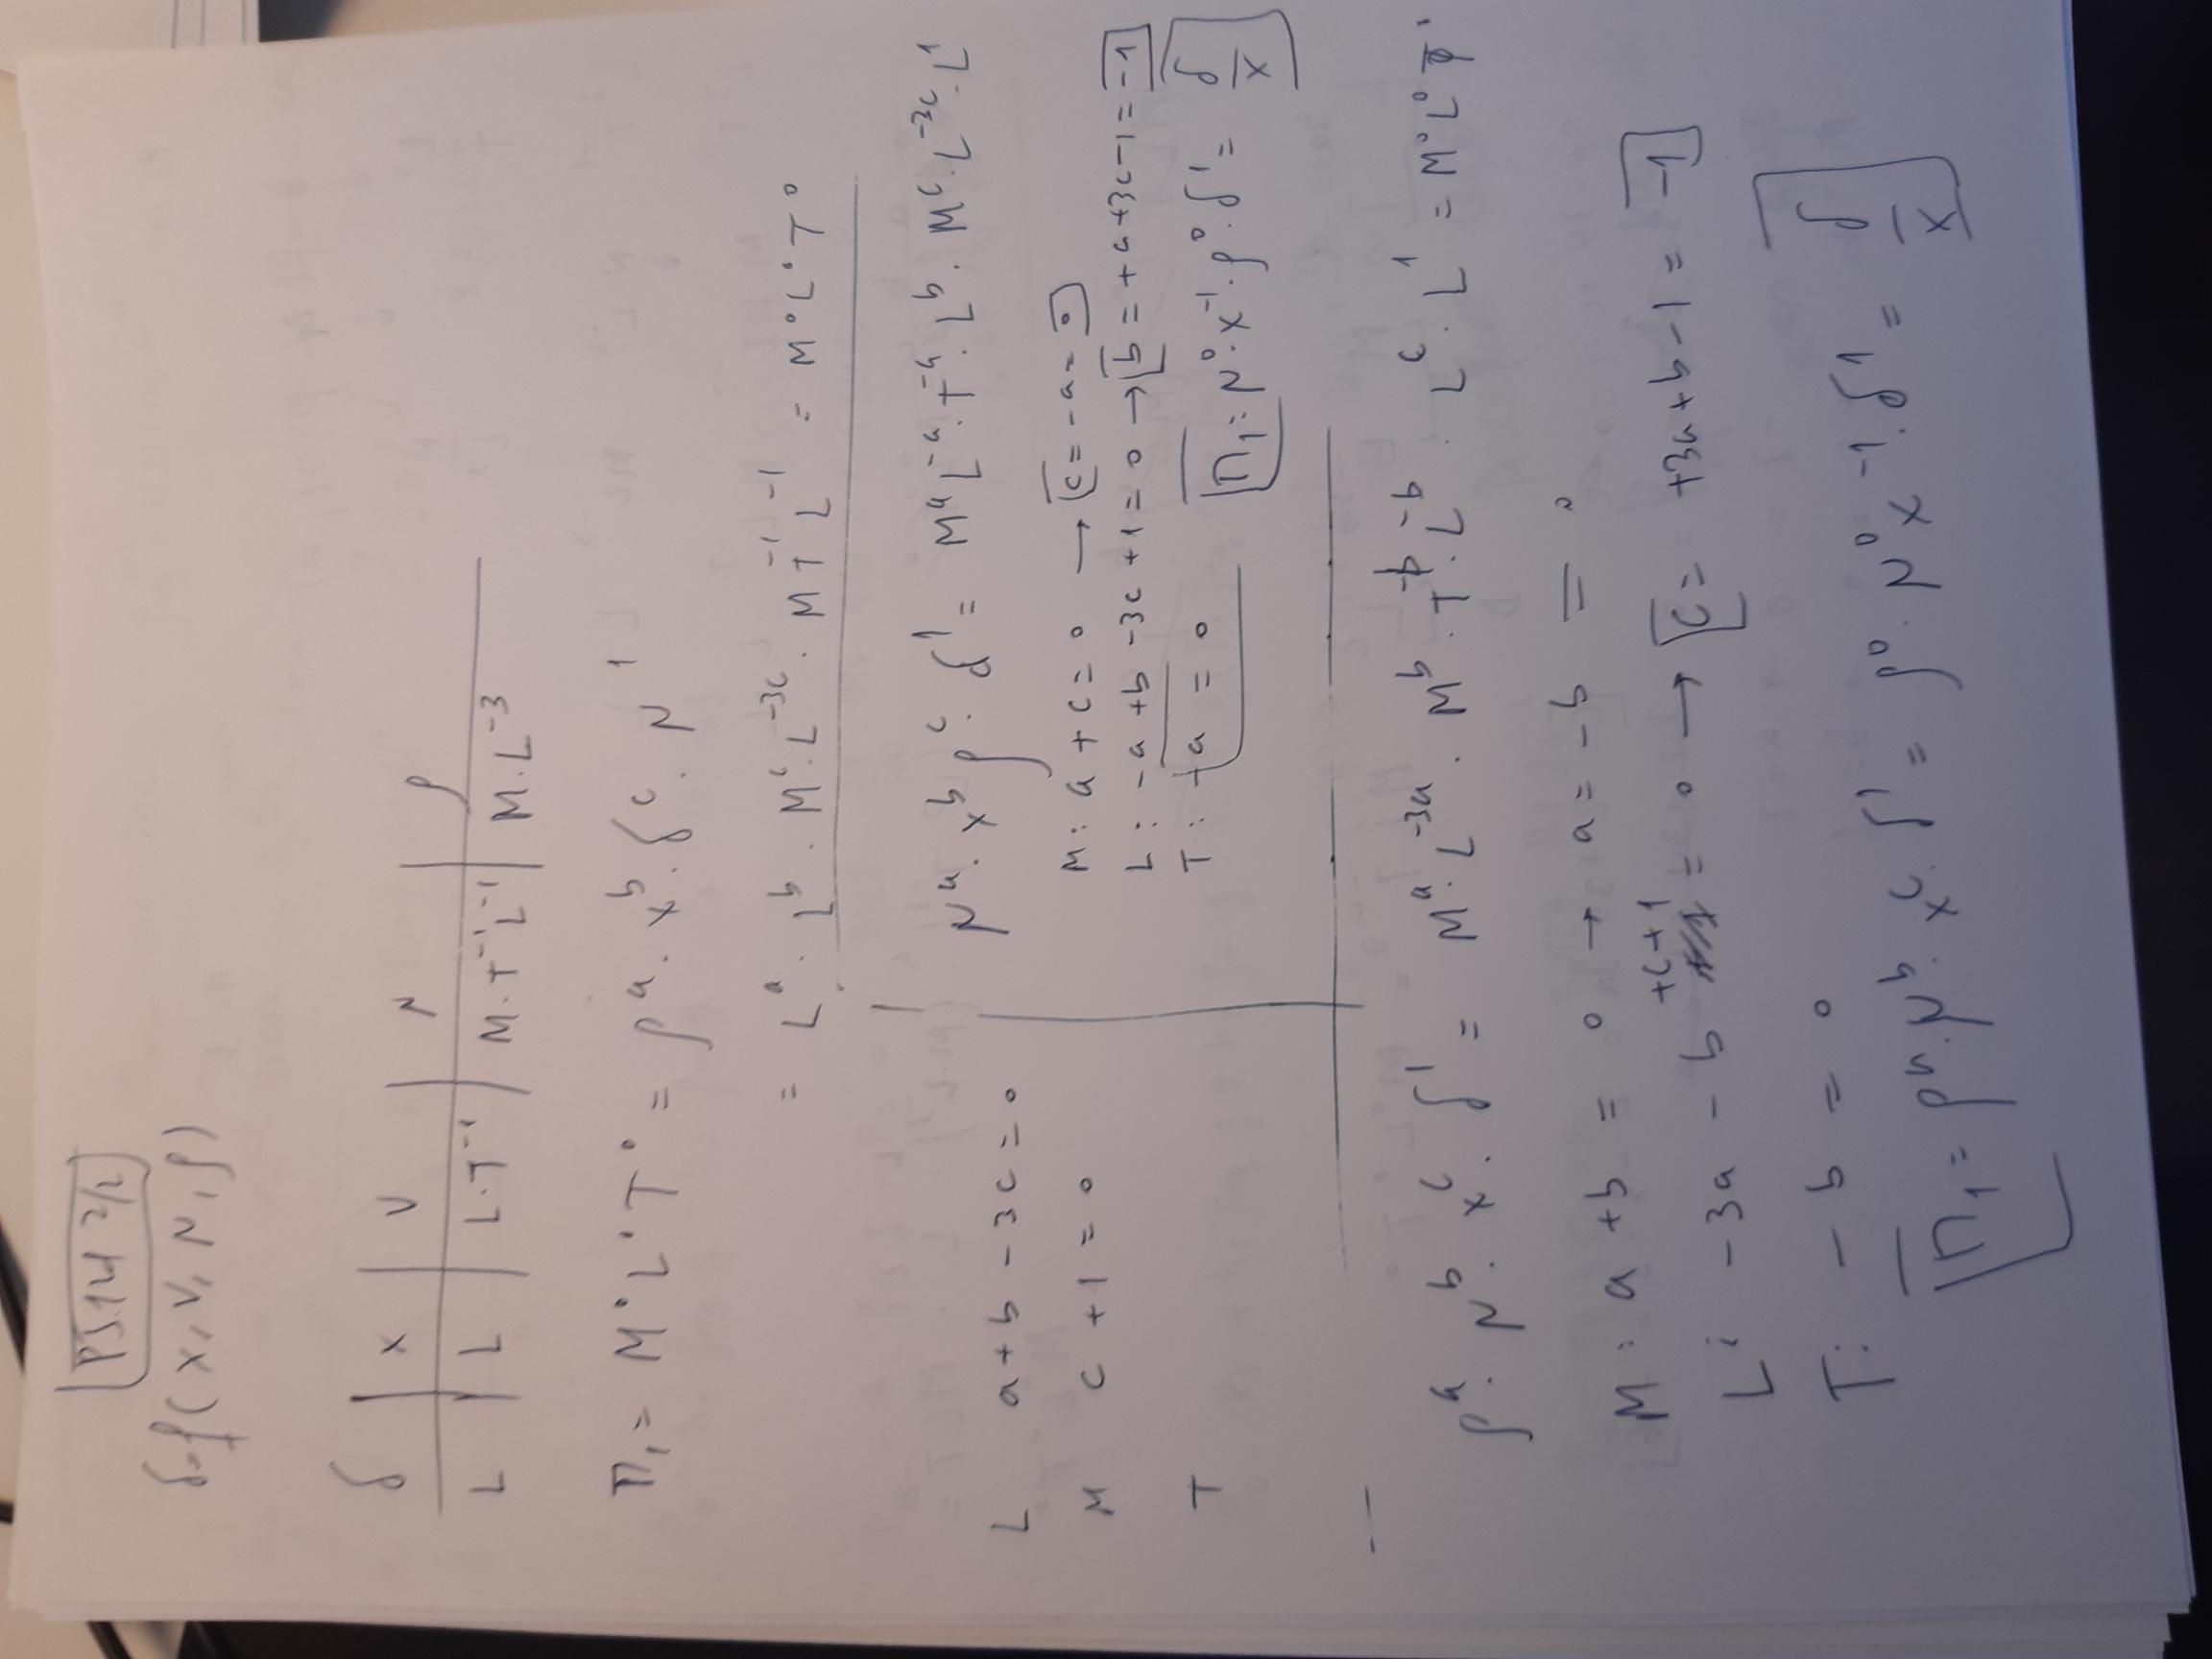 P5.14 2/2
δ=f(x, V, μ, ρ)
δ | x | V | μ | ρ
L | L | L·T⁻¹ | M·T⁻¹L⁻¹ | M·L⁻³
Π₁ = M⁰L⁰T⁰ = ρᵃ · xᵇ · δᶜ · μ¹
= Lᵃ · Lᵇ · Mᶜ·L⁻³ᶜ · M T⁻¹ L⁻¹ = M⁰L⁰T⁰
L a + b - 3c = 0
M c + 1 = 0
T
μᵃ · xᵇ ρᶜ · δ¹ = Mᵃ L⁻ᵃ · T⁻ᵃ · Lᵇ · Mᶜ · L⁻³ᶜ · L¹
M: a + c = 0 → c = -a = 0
L: -a + b - 3c + 1 = 0 → b = +a + 3c - 1 = -1
T: -a = 0
Π₁ = μ⁰ · x⁻¹ · ρ⁰ · δ¹ = δ/x
ρᵃ · μᵇ · xᶜ · δ¹ = Mᵃ · L⁻³ᵃ · Mᵇ · T⁻ᵇ · L⁻ᵇ · Lᶜ · L¹ = M⁰L⁰T⁰
M: a + b = 0 → a = -b = 0
L: -3a - b +c+1 = 0 → c = +3a + b - 1 = -1
T: - b = 0
Π₁ = ρᵃ · μᵇ · xᶜ · δ¹ = ρ⁰ · μ⁰ x⁻¹ · δ¹ = δ/x